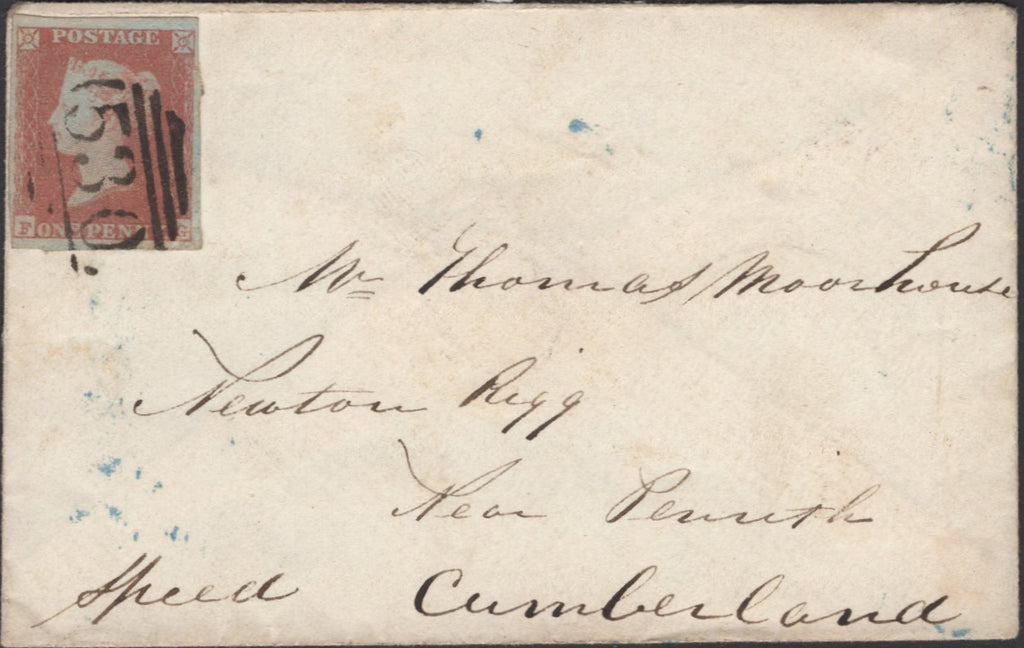 POSTAGE
530
F ONE PENNY G
Mr Thomas Moorhouse
Newton Rigg
Near Penrith
Speed Cumberland